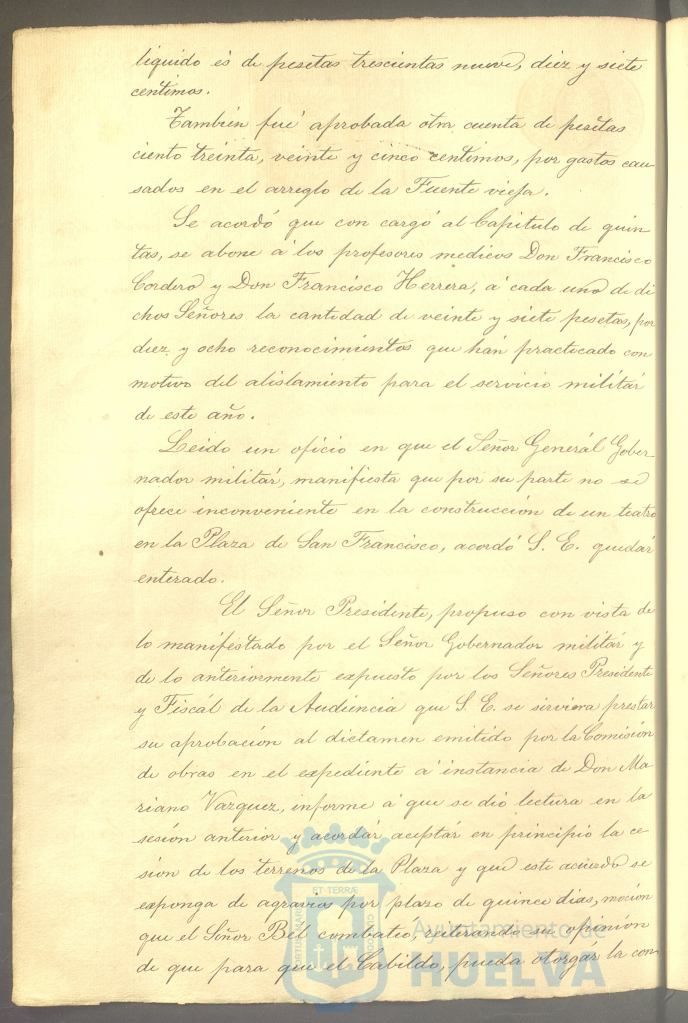 liquido és de pesetas trescientas nueve, diez y siete
centimos.
También fué aprobada otra cuenta de pesetas
ciento treinta, veinte y cinco centimos, por gastos cau-
sados en el arreglo de la Fuente vieja.
Se acordó que con cargó al Capitulo de quin-
tas, se abone á los profesores medicos Don Francisco
Cordero y Don Francisco Herrera, á cada uno de di
chos Señores la cantidad de veinte y siete pesetas, por
diez y ocho reconocimientos que hán practicado con
motivo del alistamiento para el servicio militár
de este año.
Leido un oficio en que el Señor Generál Gober-
nador militár, manifiesta que por su parte no se
ofrece inconveniente en la construccion de un teatro
en la Plaza de San Francisco, acordó S. E. quedár
enterado.
El Señor Presidente, propuso con vista de
lo manifestado por el Señor Gobernador militár y
de lo anteriormente expuesto por los Señores Presidente
y Fiscál de la Audiencia que S. E. se sirviera prestar
su aprobación al dictamen emitido por la Comisión
de obras en el expediente á instancia de Don Ma-
riano Vazquez, informe á que se dió lectura en la
sesión anterior y acordár aceptár en principio la ce-
sion de los terrenos de la Plaza y que este acuerdo se
exponga de agravios por plazo de quince dias, moción
que el Señor Bél combatio, reiterando su opinión
de que para que el Cabildo, pueda otorgár la con-
ET TERRÆ
PORTUS MARIS
CUSTODIA
Ayuntamiento de
HUELVA